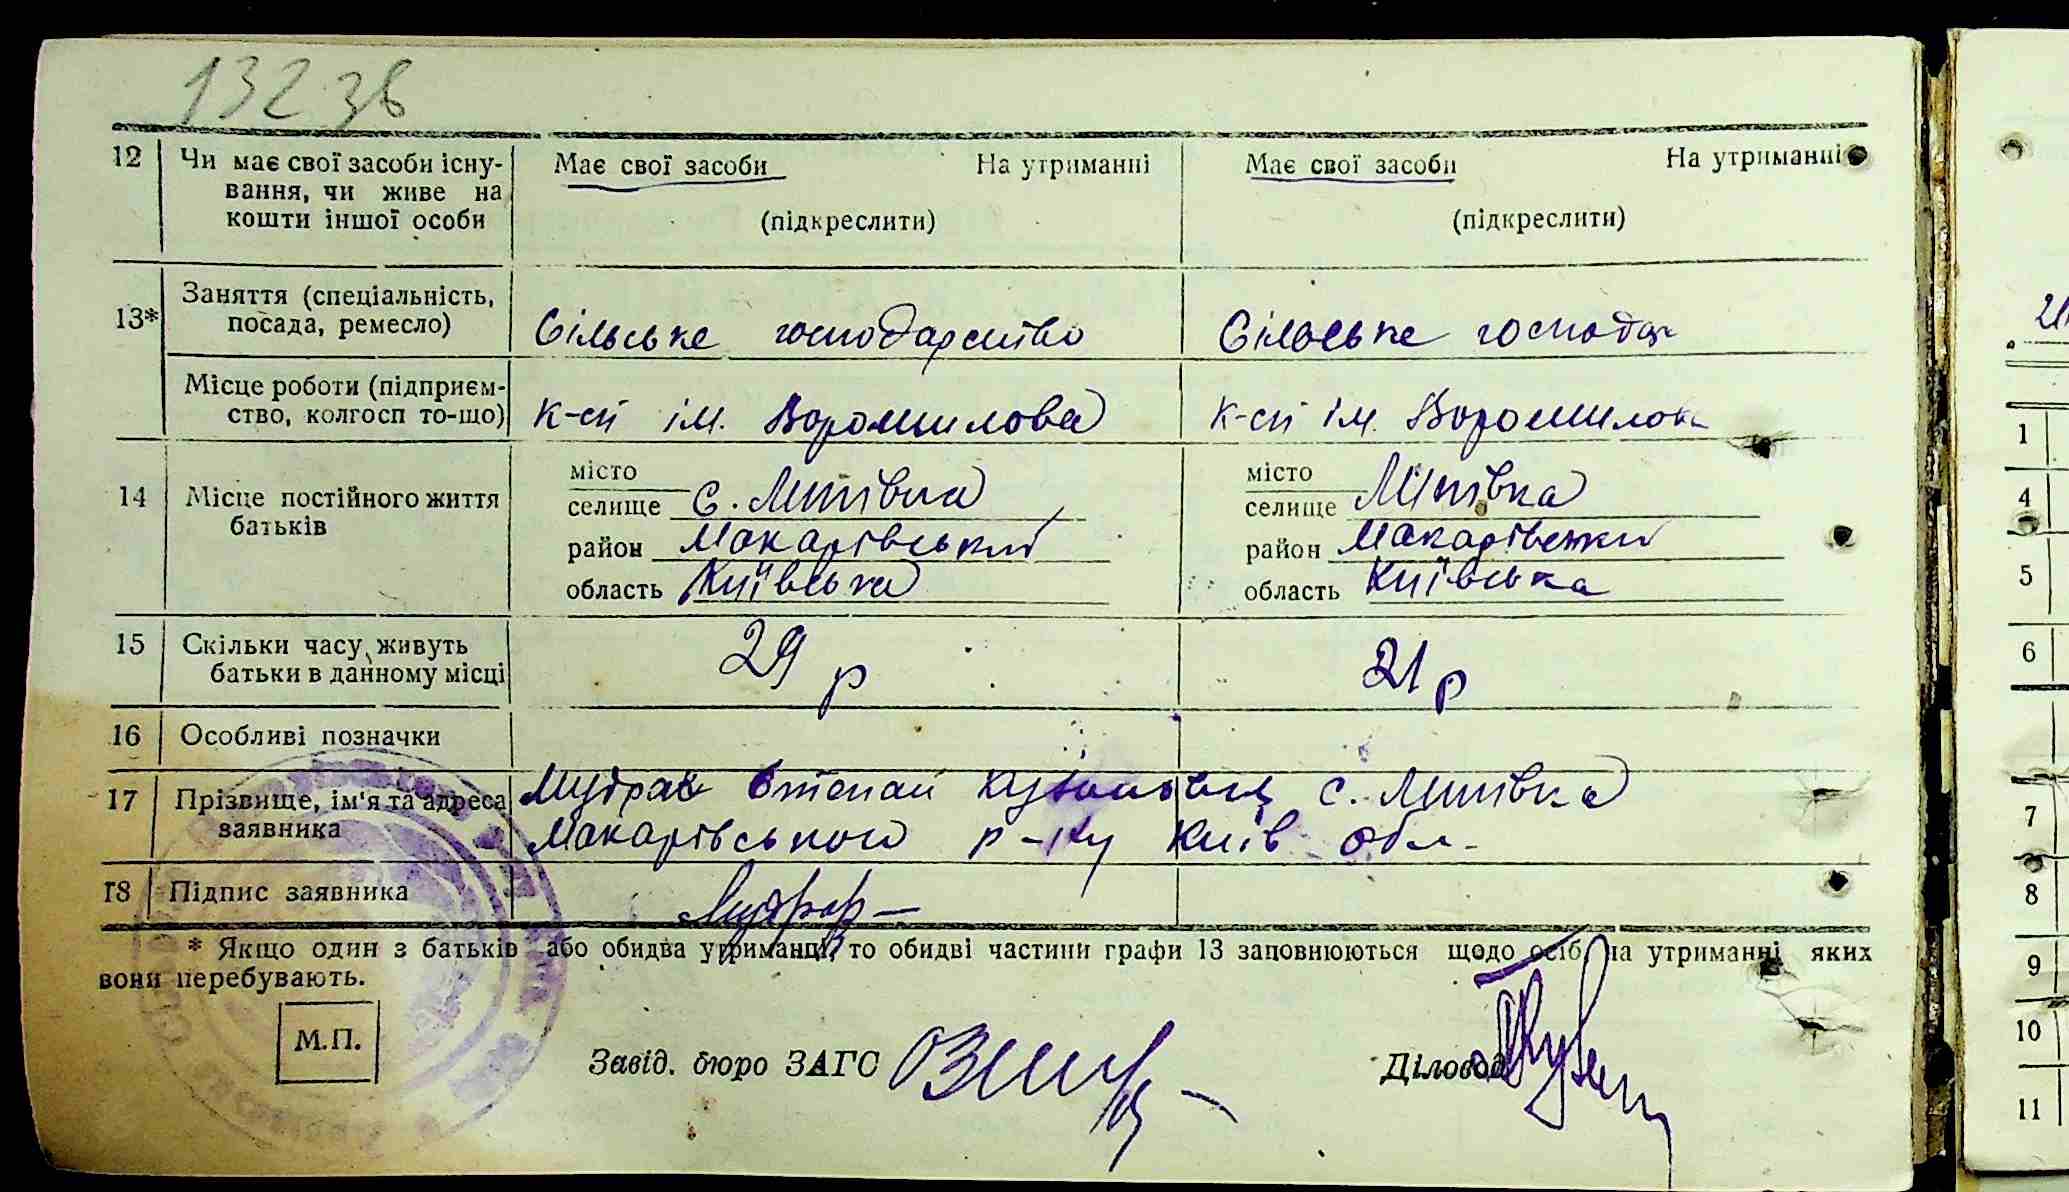 132 зв
12 Чи має свої засоби існу-
вання, чи живе на
кошти іншої особи
Має свої засоби На утриманні
(підкреслити)
Має свої засоби На утриманні
(підкреслити)
13* Заняття (спеціальність,
посада, ремесло)
Сільське господарство
Сільське господар
Місце роботи (підприєм-
ство, колгосп то-що)
К-сп ім. Ворошилова
К-сп ім. Ворошилова
14 Місце постійного життя
батьків
місто
селище с. Липівка
район Макарівський
область Київська
місто
селище Липівка
район Макарівський
область Київська
15 Скільки часу живуть
батьки в данному місці
29 р
21 р
16 Особливі позначки
17 Прізвище, ім'я та адреса
заявника
Мудрак Степан с. Липівка
Макарівського р-ну Київ обл-
18 Підпис заявника
* Якщо один з батьків або обидва утриманці, то обидві частини графи 13 заповнюються щодо осіб, на утриманні яких
вони перебувають.
М.П.
Завід. бюро ЗАГС
Діловод
1
4
5
6
7
8
9
10
11